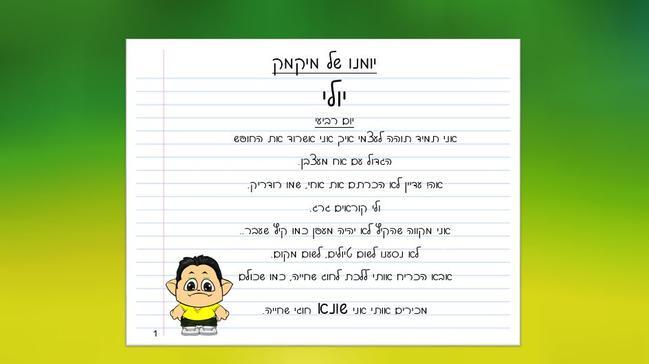 יומנו של מיקמק
יולי
יום רביעי
אני תמיד תוהה לעצמי איך אני אשרוד את החופש
הגדול עם אח מעצבן.
אהו עדיין לא הכרתם את אחי, שמו רודריק.
ולי קוראים גרג.
אני מקווה שהקיץ לא יהיה מעפן כמו קיץ שעבר..
לא נסענו לשום טיולים, לשום מקום.
אבא הכריח אותי ללכת לחוג שחייה, כמו שכולם
מכירים אותי אני שונא חוגי שחייה.
1